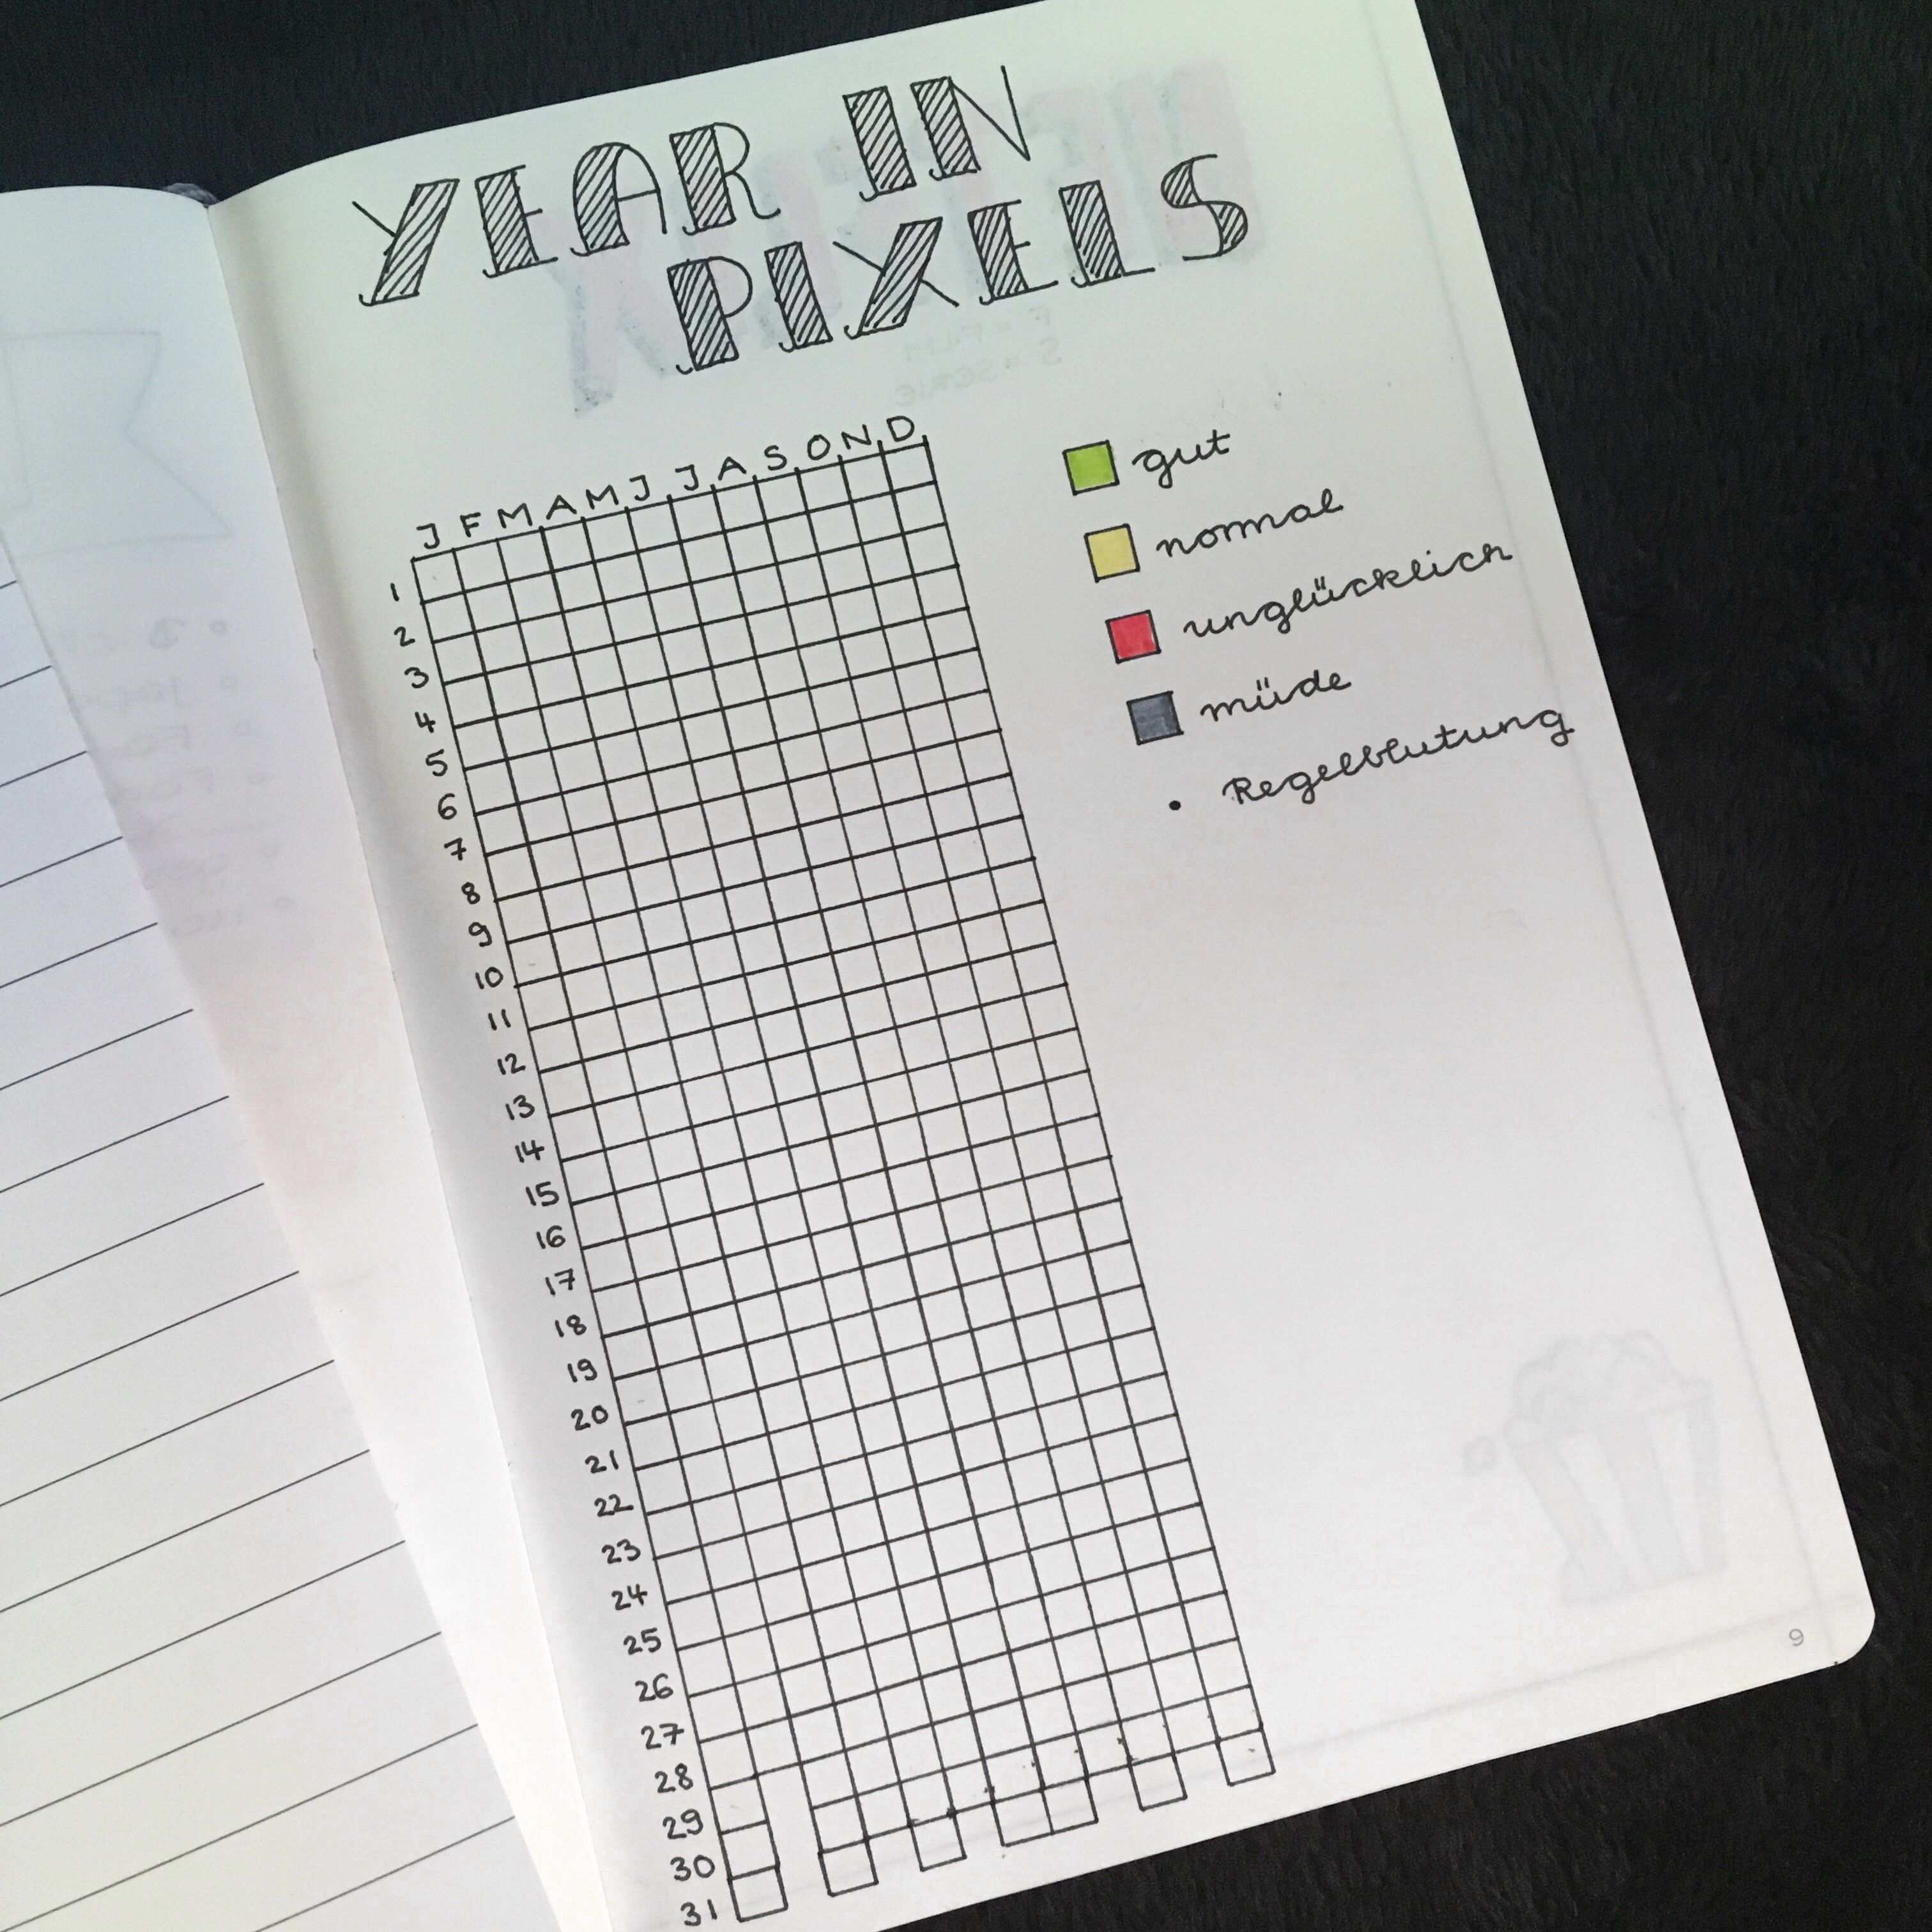 YEAR IN
PIXELS
J F M A M J J A S O N D
1
2
3
4
5
6
7
8
9
10
11
12
13
14
15
16
17
18
19
20
21
22
23
24
25
26
27
28
29
30
31
gut
normal
unglücklich
müde
• Regelblutung
9